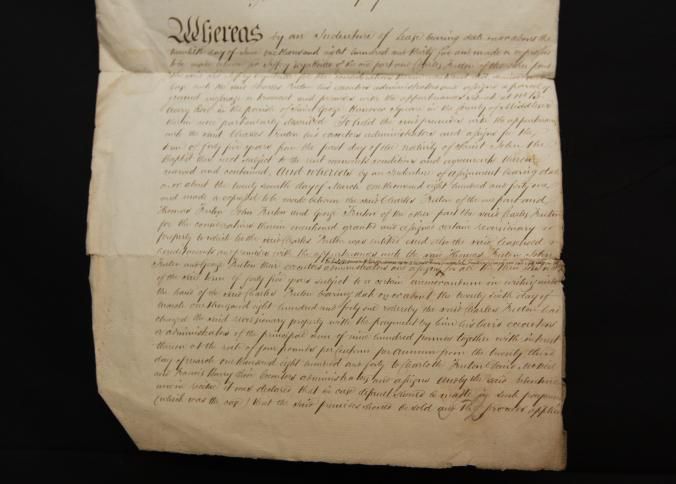 Whereas by an Indenture of Lease bearing date on or about the
twelfth day of June one thousand eight hundred and thirty five and made or expressed
to be made between Sir Jeffry Wyatville of the one part and Charles Fruton of the other part
the said Sir Jeffry Wyatville for the considerations therein
unto the said Charles Fruton his executors administrators and assigns a parcel of
ground messuage or tenement and premises with the appurtenances
in the parish of Saint George Hanover Square in the County of Middlesex
therein more particularly described To hold the said premises with the appurtenances
unto the said Charles Fruton his executors administrators and assigns for the
term of forty five years from the feast day of the nativity of Saint John the
Baptist then next subject to the rent covenants conditions and agreements therein
reserved and contained And whereas by an Indenture of assignment bearing date
on or about the twenty seventh day of March one thousand eight hundred and forty one
and made or expressed to be made between the said Charles Fruton of the one part and
Thomas Fruton John Fruton and George Fruton of the other part the said Charles Fruton
for the considerations therein mentioned granted and assigned certain reversionary
property to which he the said Charles Fruton was entitled and also the said leasehold
hereditaments and premises with the appurtenances unto the said Thomas Fruton John
Fruton and George Fruton their executors administrators and assigns for all the then
of the said term of forty five years subject to a certain memorandum in writing under
the hand of the said Charles Fruton bearing date on or about the twenty sixth day of
March one thousand eight hundred and forty one whereby the said Charles Fruton had
charged the said reversionary property with the payment by him his heirs executors
or administrators of the principal sum of nine hundred pounds together with interest
thereon at the rate of four pounds per centum per annum from the twenty third
day of March one thousand eight hundred and forty to Charlotte Fruton
and Francis Henry their executors administrators and assigns And by the said Indenture
now in recital it was declared that in case default should be made in such payment
(which was the case) that the said premises should be sold and the proceeds applied